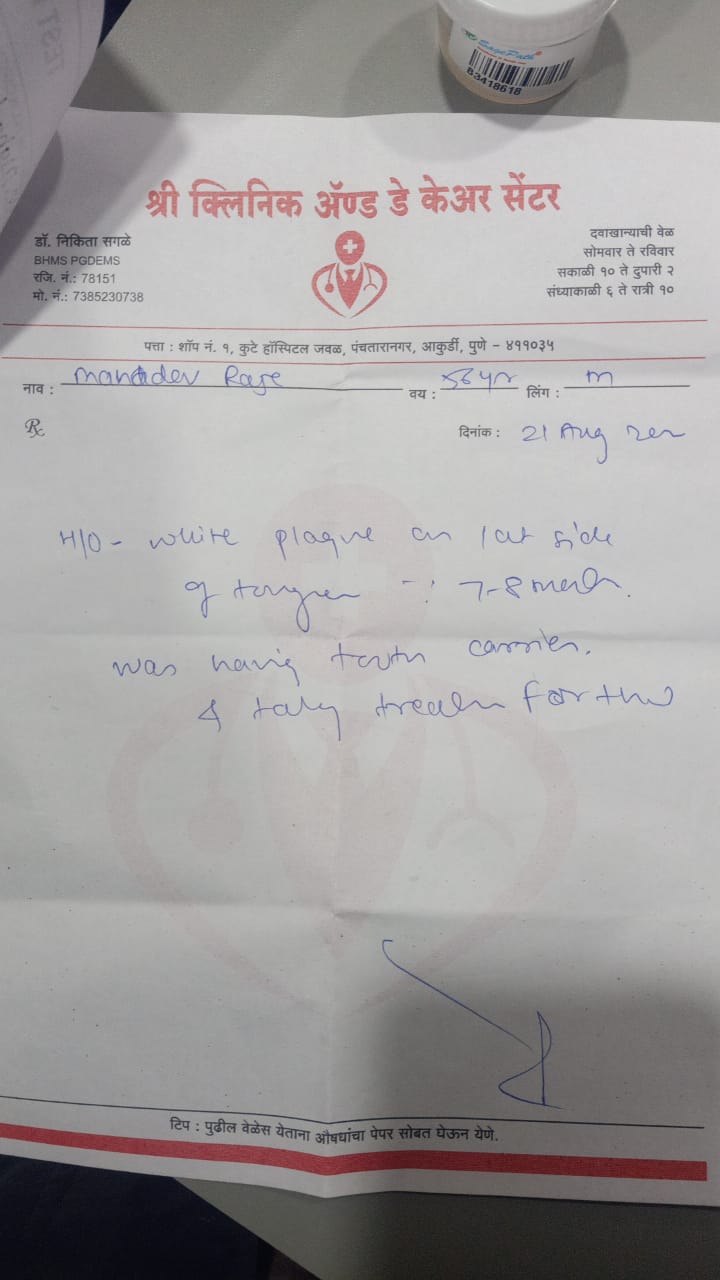 SagePath
B3418618
श्री क्लिनिक ॲण्ड डे केअर सेंटर
डॉ. निकिता सगळे
BHMS PGDEMS
रजि. नं.: 78151
मो. नं.: 7385230738
दवाखान्याची वेळ
सोमवार ते रविवार
सकाळी १० ते दुपारी २
संध्याकाळी ६ ते रात्री १०
पत्ता : शॉप नं. १, कुटे हॉस्पिटल जवळ, पंचतारानगर, आकुर्डी, पुणे - ४११०३५
नाव : वय : 56 yr लिंग : m
Rx दिनांक : 21 Aug
H/O - white plaque on lat side
of 7-8 
was having tooth carries.
& treatm for this
टिप : पुढील वेळेस येताना औषधांचा पेपर सोबत घेऊन येणे.